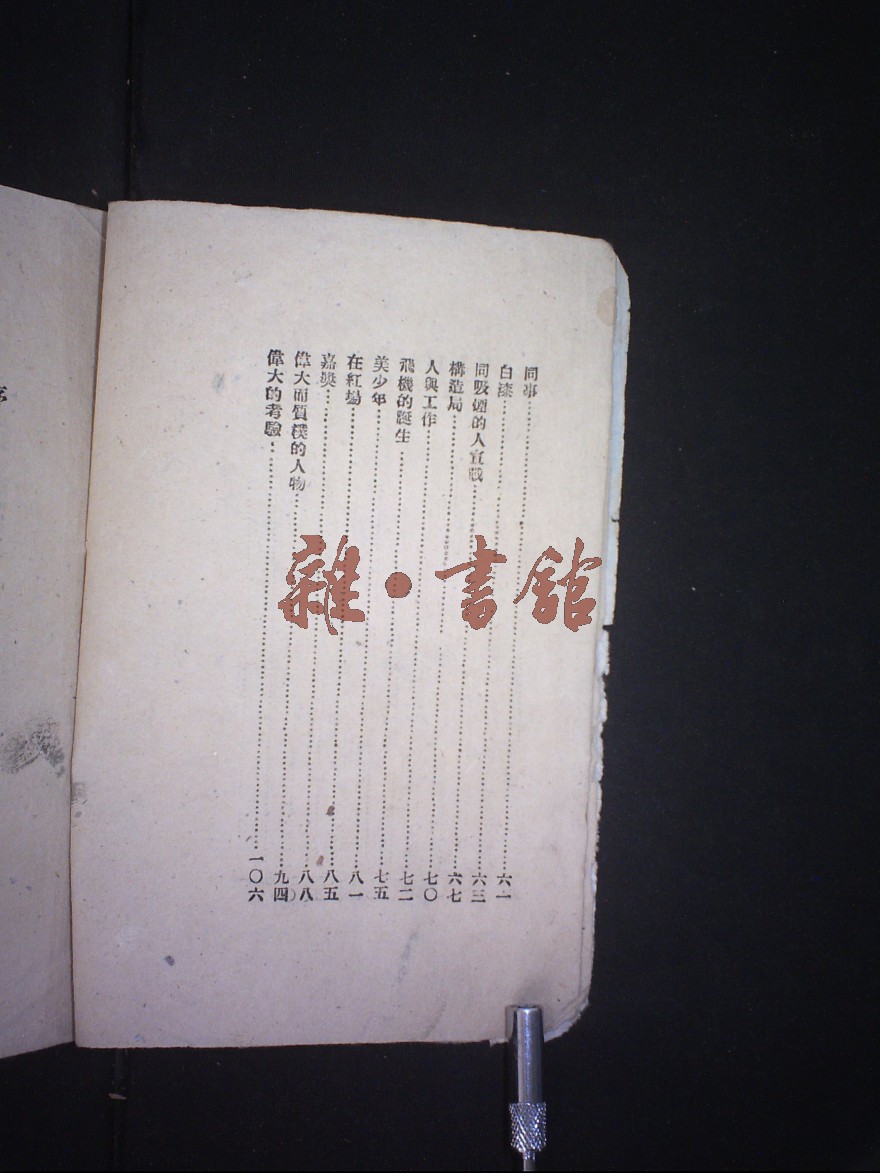 同事……六一
白漆……六三
同吸煙的人宣戰……六七
構造局……七〇
人與工作……七二
飛機的誕生……七五
美少年……八一
在紅場……八五
嘉獎……八八
偉大而質樸的人物……九四
偉大的考驗……一〇六
雜•書館